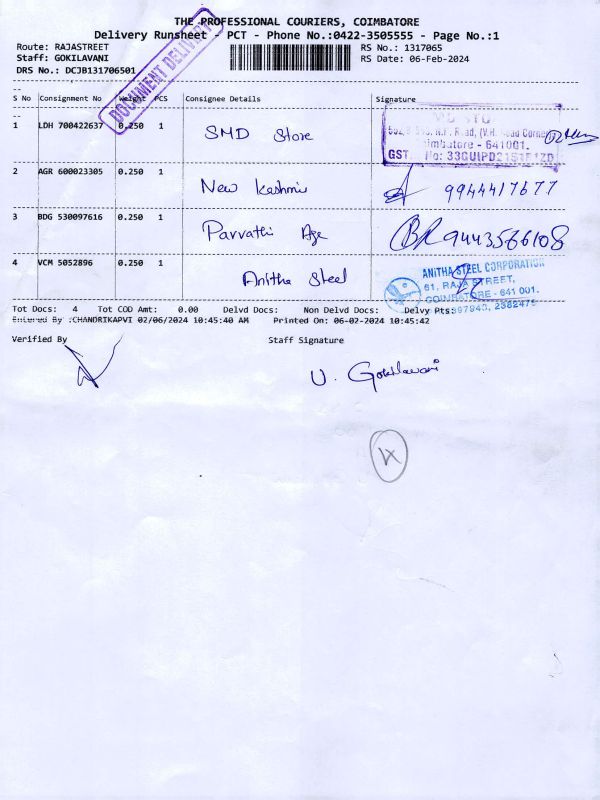 THE PROFESSIONAL COURIERS, COIMBATORE
Delivery Runsheet - PCT - Phone No.:0422-3505555 - Page No.:1
Route: RAJASTREET
Staff: GOKILAVANI
DRS No.: DCJB131706501
RS No.: 1317065
RS Date: 06-Feb-2024
DOCUMENT DELIVERY
S No Consignment No Weight PCS Consignee Details Signature
1 LDH 700422637 0.250 1 SMD Store
641001.
GST No: 33GUIPD21S1F1ZD
2 AGR 600023305 0.250 1 New Kashmir 9944417677
3 BDG 530097616 0.250 1 Parvathi Age 9443566108
4 VCM 5052896 0.250 1 Anitha Steel
ANITHA STEEL CORPORATION
61, RAJA STREET,
COIMBATORE - 641 001.
Tot Docs: 4 Tot COD Amt: 0.00 Delvd Docs: Non Delvd Docs: Delvy Pts:
Entered By :CHANDRIKAPVI 02/06/2024 10:45:40 AM Printed On: 06-02-2024 10:45:42
Verified By Staff Signature
U. Gokilavani
4